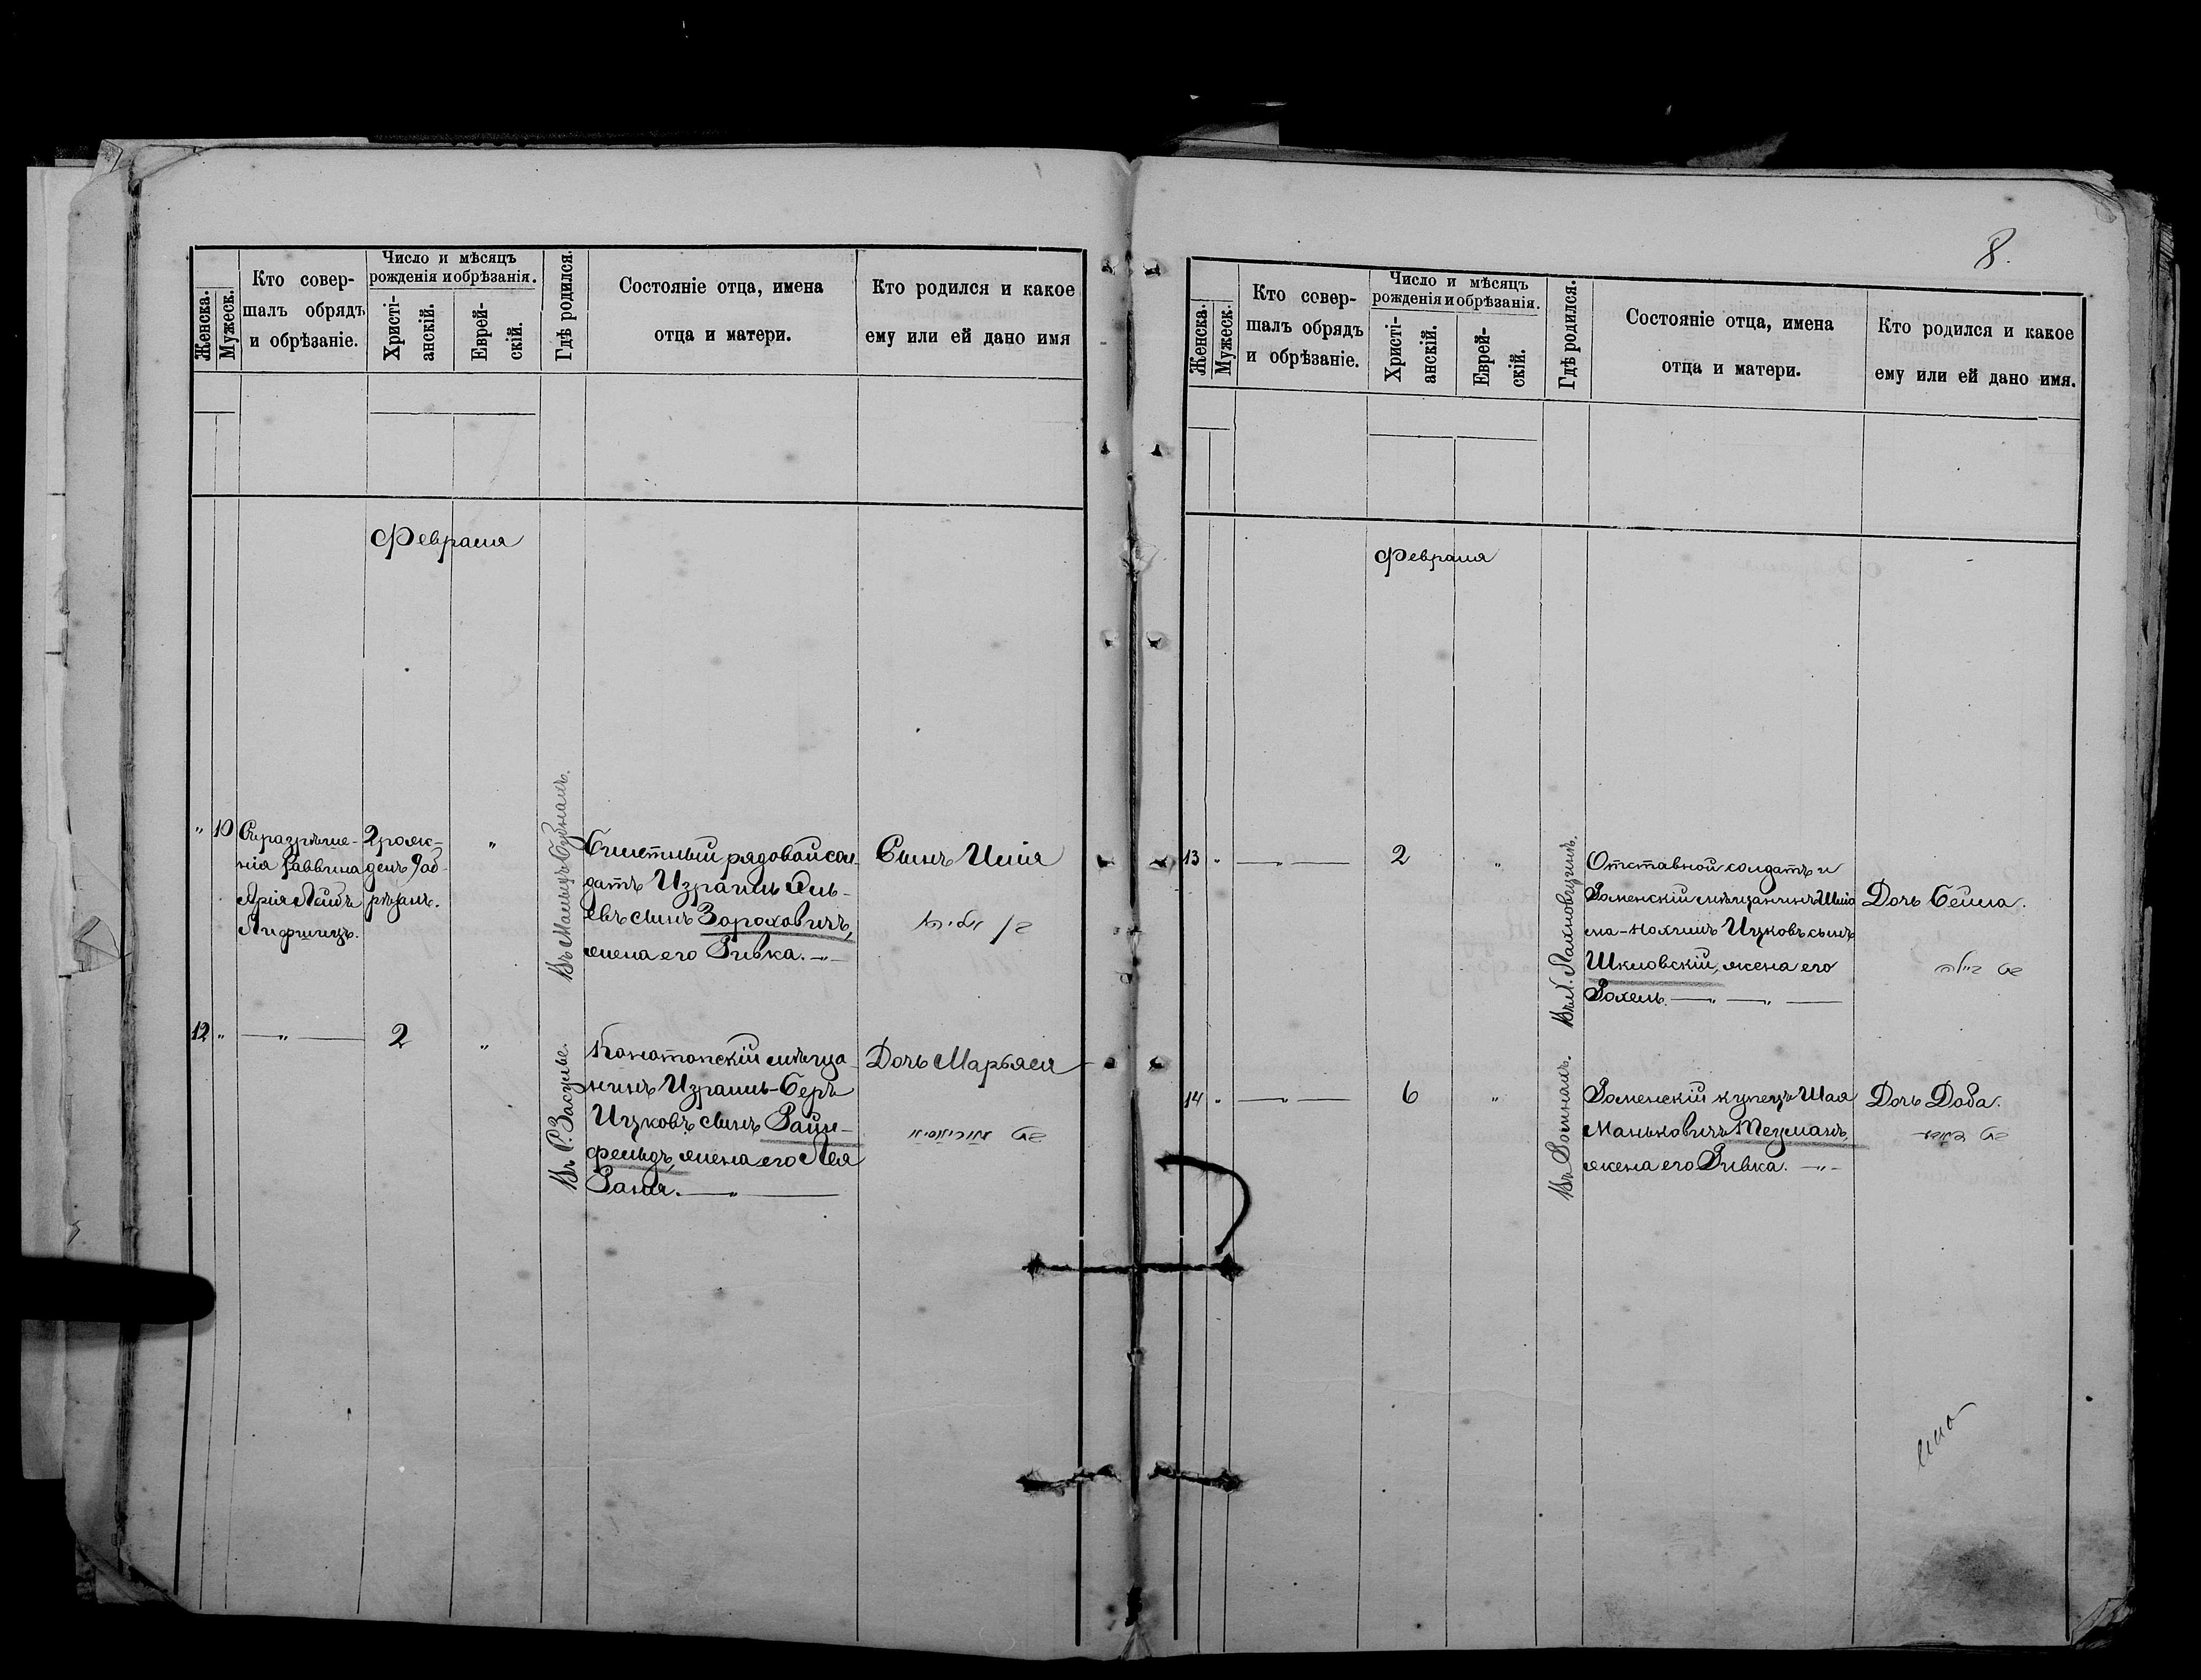 Женска.
Мужеск.
Кто совер-
шалъ обрядъ
и обрѣзаніе.
Число и мѣсяцъ
рожденія и обрѣзанія.
Христі-
анскій.
Еврей-
скій.
Гдѣ родился.
Состояніе отца, имена
отца и матери.
Кто родился и какое
ему или ей дано имя
Февраля
" 10
Съ разрѣше-
нія раввина
Арія Лейбъ
Лифшицъ.
2 рож-
денъ 9 об-
рѣзанъ.
"
Билетный рядовой сол-
датъ Израиль
евъ сынъ Зороховичъ,
жена его Ривка. —"—
Сынъ Илія
12 "
— " —
2
"
Въ Р. Засулье.
Конотопскій мѣща-
нинъ Израиль-Беръ
Ицковъ сынъ Райн-
фельдъ, жена его Лея
Раня. — " —
Дочь Марьяся
8.
Женска.
Мужеск.
Кто совер-
шалъ обрядъ
и обрѣзаніе.
Число и мѣсяцъ
рожденія и обрѣзанія.
Христі-
анскій.
Еврей-
скій.
Гдѣ родился.
Состояніе отца, имена
отца и матери.
Кто родился и какое
ему или ей дано имя.
Февраля
13 "
— " —
2
"
Отставной солдатъ и
Роменскій мѣщанинъ Шліо
ма-Нохимъ Ицковъ сынъ
Шкловскій, жена его
Рохель. — " — " —
Дочь Бейла.
בת ביילה
14 "
— " —
6
"
Въ Ромнахъ.
Роменскій купецъ Шая
Маньковичъ Тецманъ,
жена его Ривка. —"—
Дочь Доба.